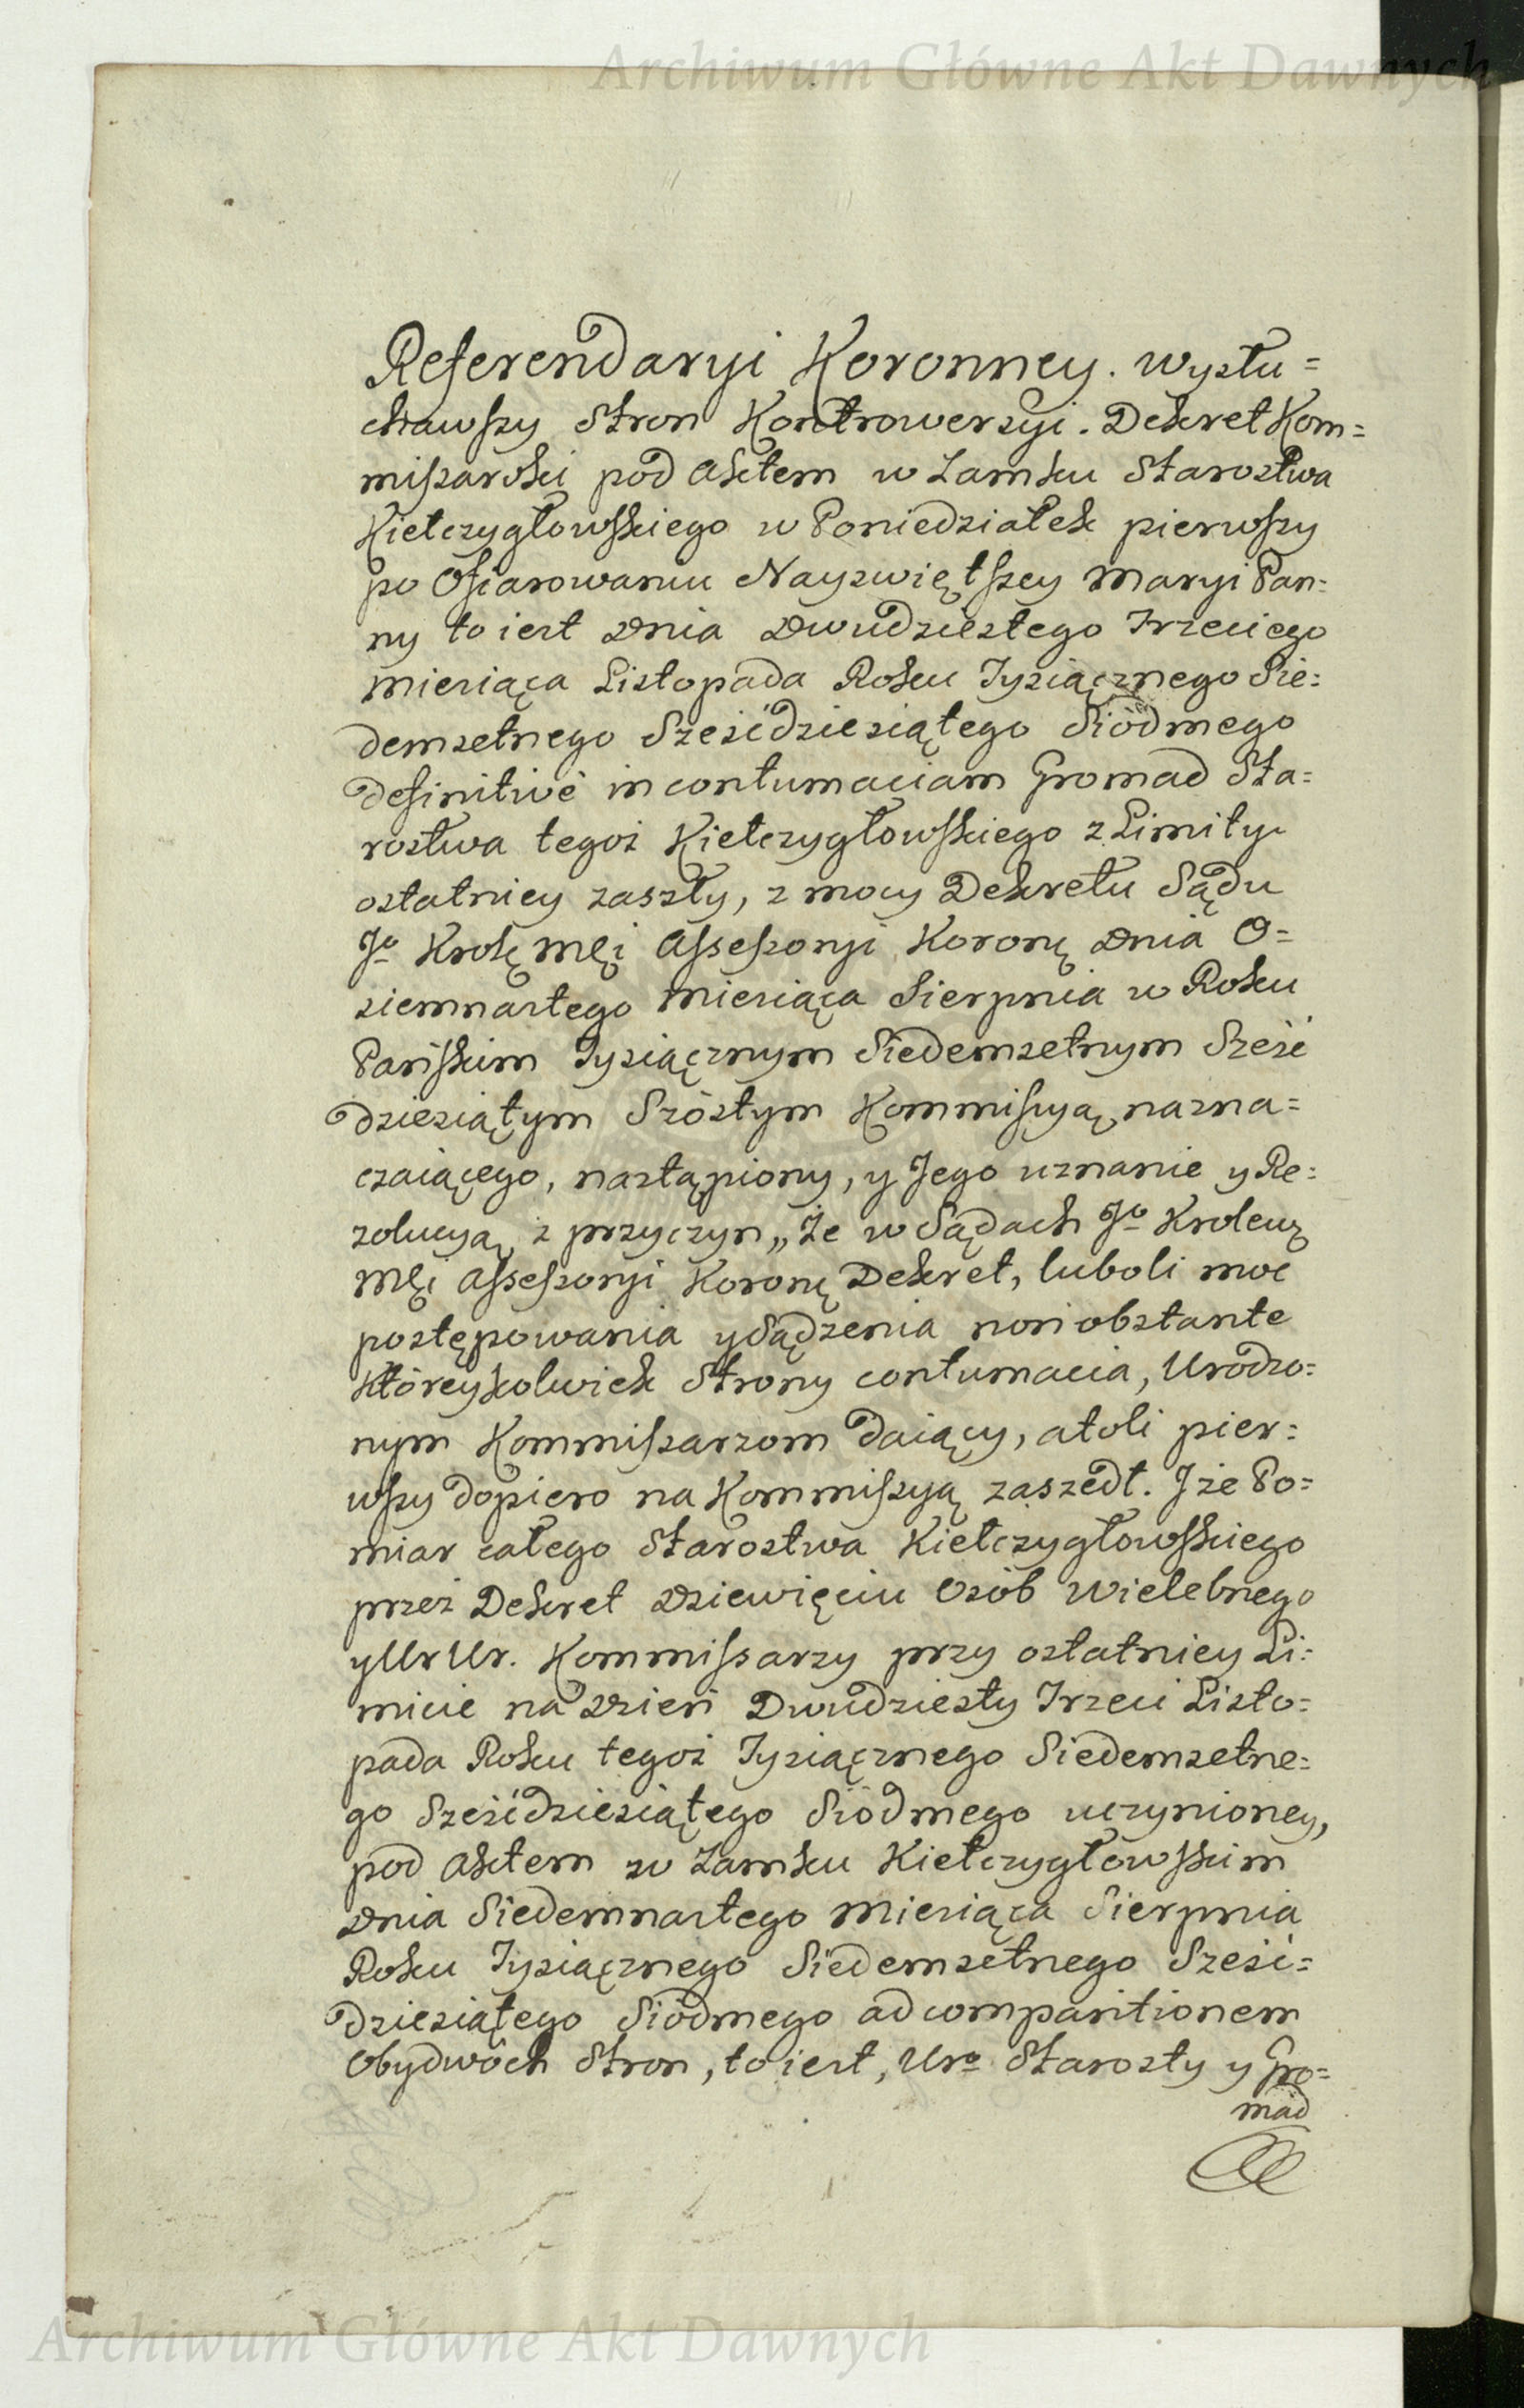 Archiwum Główne Akt Dawnych
Referendaryi Koronney. Wysłu=
chawszy Stron Kontrowersyi. Dekret Kom=
missarski pod Aktem w Zamku Starostwa
Kiełczygłowskiego w Poniedziałek pierwszy
po Ofiarowaniu Nayswiętszey Maryi Pan=
ny to iest Dnia Dwudziestego Trzeciego
Miesiąca Listopada Roku Tysiącznego Sie=
demsetnego Sześćdziesiątego Siódmego
definitivè in contumaciam Gromad Sta=
rostwa tegoż Kiełczygłowskiego z Limity
ostatniey zaszły, z mocy Dekretu Sądu
Jo Krolę Męi Assessoryi Koronę Dnia O=
siemnastego Miesiąca Sierpnia w Roku
Pańskim Tysiącznym Siedemsetnym Sześć
dziesiątym Szóstym Kommissyą nazna=
czaiącego, nastąpiony, y Jego uznanie y Re=
zolucyą z przyczyn „Że w Sądach Jo Krolewę
Męi Assessoryi Koronę Dekret, luboli moc
postępowania y Sądzenia non obstante
Któreykolwiek Strony contumacia, Urodzo=
nym Kommissarzom daiący, atoli pier=
wszy dopiero na Kommissyą zaszedł. I że Po=
miar całego Starostwa Kiełczygłowskiego
przez Dekret Dziewięciu Osób Wielebnego
y Ur Ur. Kommissarzy przy ostatniey Li=
micie na Dzień Dwudziesty Trzeci Listo=
pada Roku tegoż Tysiącznego Siedemsetne=
go Sześćdziesiątego Siódmego uczynioney,
pod Aktem w Zamku Kiełczygłowskim
Dnia Siedemnastego Miesiąca Sierpnia
Roku Tysiącznego Siedemsetnego Sześć=
dziesiątego Siódmego ad comparitionem
Obydwóch Stron, to iest, Uro Starosty y Gro=
mad
Archiwum Główne Akt Dawnych